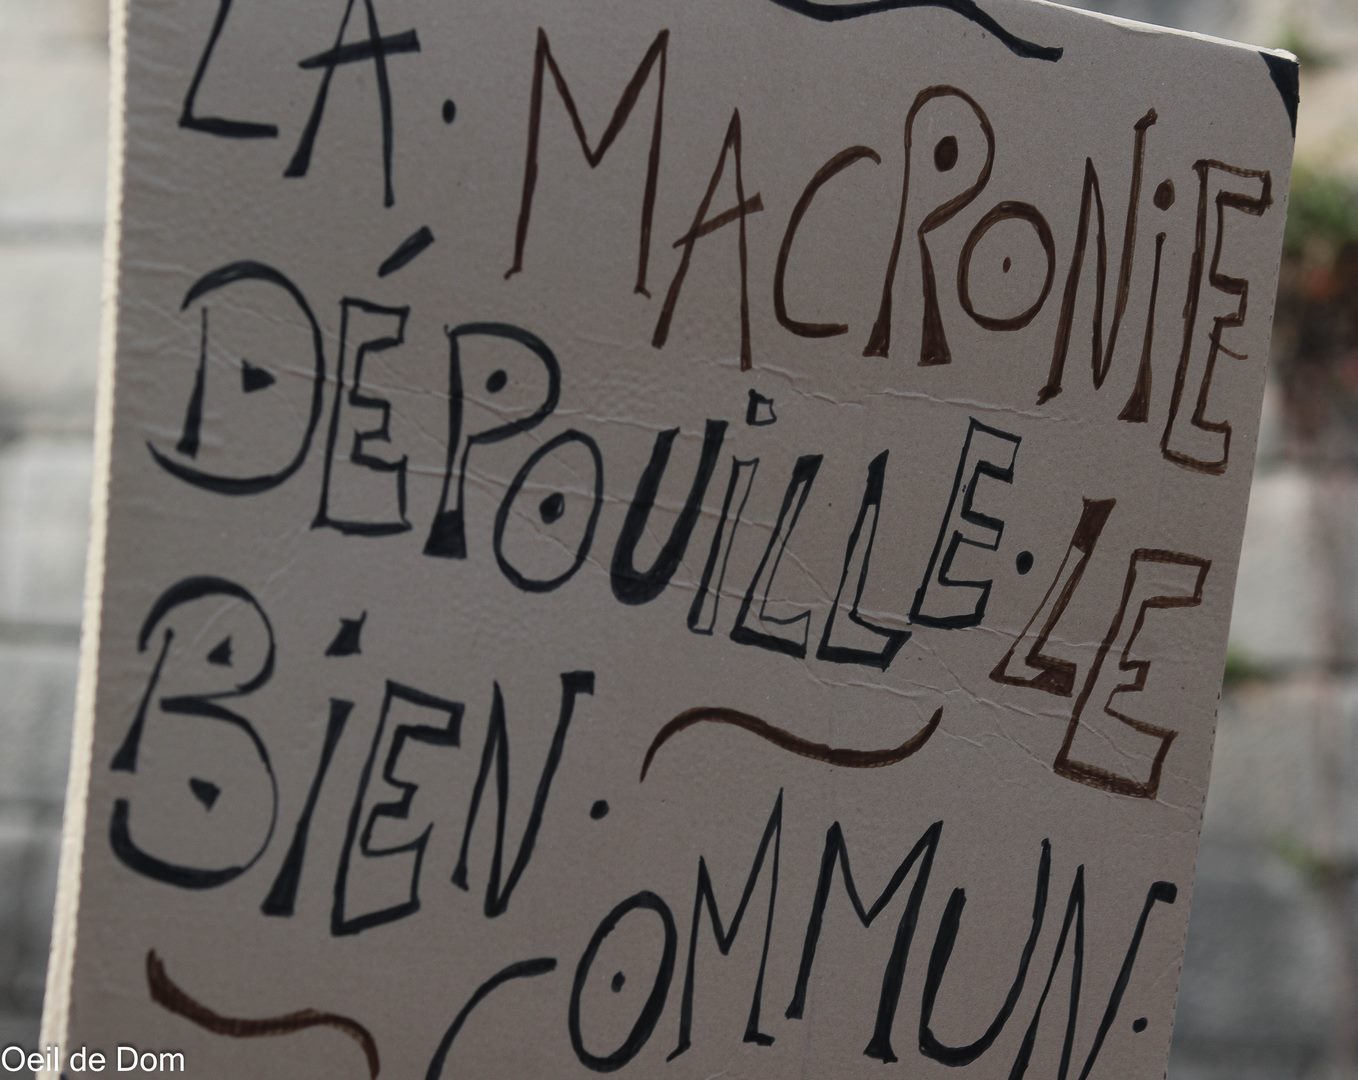 LA. MACRONiE
DÉPOUiLLE. LE
BiEN.
COMMUN.
Oeil de Dom